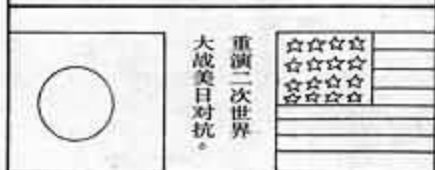 重演二次世界
大战美日对抗。